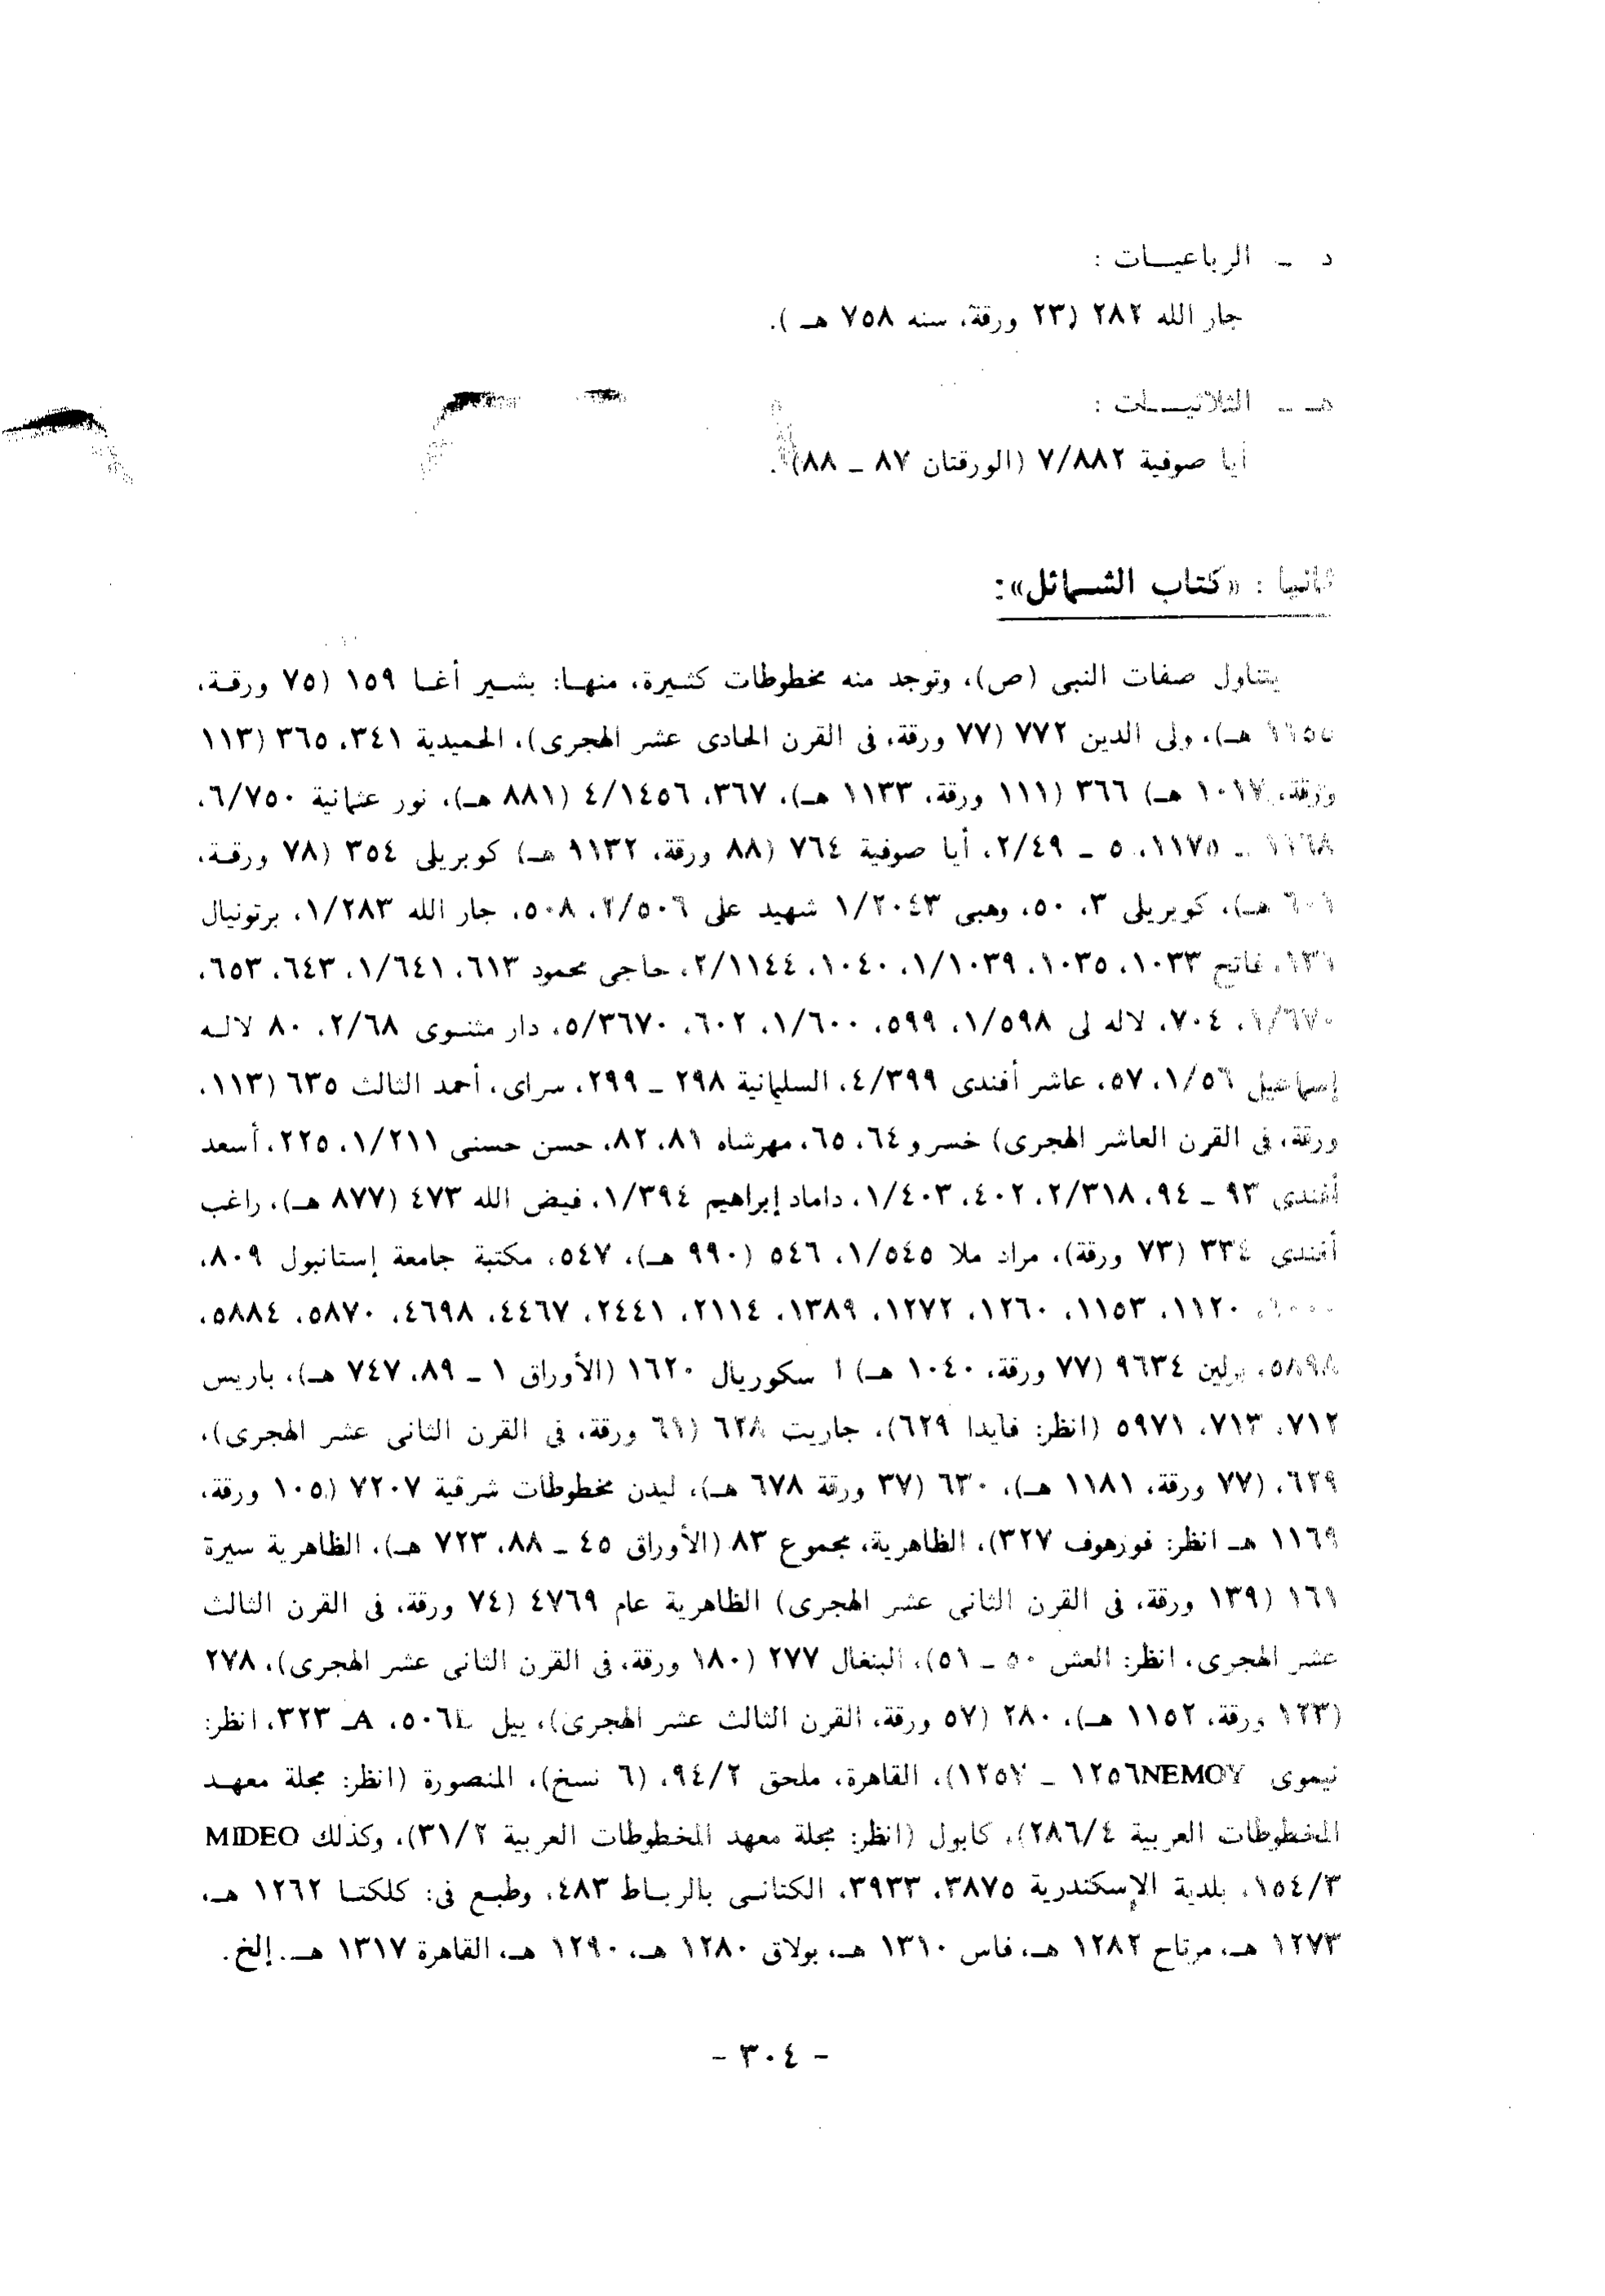 د ـ الرباعيـات :
جار الله ٢٨٢ (٢٣ ورقة، سنه ٧٥٨ هـ ).
هـ ـ الثلاثيـات :
أيا صوفية ٧/٨٨٢ (الورقتان ٨٧ ـ ٨٨).
ثانيا : «كتاب الشمائل»:
يتناول صفات النبى (ص)، وتوجد منه مخطوطات كثيرة، منها: بشير أغا ١٥٩ (٧٥ ورقة،
١١٥٥ هـ)، ولى الدين ٧٧٢ (٧٧ ورقة، فى القرن الحادى عشر الهجرى)، الحميدية ٣٤١، ٣٦٥ (١١٣
ورقة، ١٠١٧ هـ) ٣٦٦ (١١١ ورقة، ١١٣٣ هـ)، ٣٦٧، ٤/١٤٥٦ (٨٨١ هـ)، نور عثمانية ٦/٧٥٠،
ـ ١١٧٥، ٥ ـ ٢/٤٩، أيا صوفية ٧٦٤ (٨٨ ورقة، ١١٣٢ هـ) كوبريلى ٣٥٤ (٧٨ ورقة،
هـ)، كوبريلى ٣، ٥٠، وهبى ١/٢٠٤٣ شهيد على ٢/٥٠٦، ٥٠٨، جار الله ١/٢٨٣، برتونيال
فاتح ١٠٣٣، ١٠٣٥، ١/١٠٣٩، ١٠٤٠، ٢/١١٤٤، حاجى محمود ٦١٣، ١/٦٤١، ٦٤٣، ٦٥٣،
١/٦٧٠، ٧٠٤، لاله لى ١/٥٩٨، ٥٩٩، ١/٦٠٠، ٦٠٢، ٥/٣٦٧٠، دار مثنوى ٢/٦٨، ٨٠ لاله
إسماعيل ١/٥٦، ٥٧، عاشر أفندى ٤/٣٩٩، السليمانية ٢٩٨ ـ ٢٩٩، سراى، أحمد الثالث ٦٣٥ (١١٣،
ورقة، فى القرن العاشر الهجرى) خسرو ٦٤، ٦٥، مهرشاه ٨١، ٨٢، حسن حسنى ١/٢١١، ٢٢٥، أسعد
أفندى ٩٣ ـ ٩٤، ٢/٣١٨، ٤٠٢، ١/٤٠٣، داماد إبراهيم ١/٣٩٤، فيض الله ٤٧٣ (٨٧٧ هـ)، راغب
أفندى ٣٣٤ (٧٣ ورقة)، مراد ملا ١/٥٤٥، ٥٤٦ (٩٩٠ هـ)، ٥٤٧، مكتبة جامعة إستانبول ٨٠٩،
١١٢٠، ١١٥٣، ١٢٦٠، ١٢٧٢، ١٣٨٩، ٢١١٤، ٢٤٤١، ٤٤٦٧، ٤٦٩٨، ٥٨٧٠، ٥٨٨٤،
٥٨٩٨، برلين ٩٦٣٤ (٧٧ ورقة، ١٠٤٠ هـ) ا سكوريال ١٦٢٠ (الأوراق ١ ـ ٨٩، ٧٤٧ هـ)، باريس
٧١٢، ٧١٣، ٥٩٧١ (انظر: فايدا ٦٢٩)، جاريت ٦٢٨ (٦١ ورقة، فى القرن الثانى عشر الهجرى)،
٦٢٩، (٧٧ ورقة، ١١٨١ هـ)، ٦٣٠ (٣٧ ورقة ٦٧٨ هـ)، ليدن مخطوطات شرقية ٧٢٠٧ (١٠٥ ورقة،
١١٦٩ هـ انظر: فورهوف ٣٢٧)، الظاهرية، مجموع ٨٣ (الأوراق ٤٥ ـ ٨٨، ٧٢٣ هـ)، الظاهرية سيرة
١٦١ (١٣٩ ورقة، فى القرن الثانى عشر الهجرى) الظاهرية عام ٤٧٦٩ (٧٤ ورقة، فى القرن الثالث
عشر الهجرى، انظر: العش ٥٠ ـ ٥١)، البنغال ٢٧٧ (١٨٠ ورقة، فى القرن الثانى عشر الهجرى)، ٢٧٨
(١٢٣ ورقة، ١١٥٢ هـ)، ٢٨٠ (٥٧ ورقة، القرن الثالث عشر الهجرى)، ييل L ٥٠٦، A ـ ٣٢٣، انظر:
نيموى NEMOY ١٢٥٦ ـ ١٢٥٧)، القاهرة، ملحق ٩٤/٢، (٦ نسخ)، المنصورة (انظر: مجلة معهد
المخطوطات العربية ٢٨٦/٤)، كابول (انظر: مجلة معهد المخطوطات العربية ٣١/٢)، وكذلك MIDEO
١٥٤/٣، بلدية الإسكندرية ٣٨٧٥، ٣٩٣٣، الكتانى بالرباط ٤٨٣، وطبع فى: كلكتا ١٢٦٢ هـ،
١٢٧٣ هـ، مرتاح ١٢٨٢ هـ، فاس ١٣١٠ هـ، بولاق ١٢٨٠ هـ، ١٢٩٠ هـ، القاهرة ١٣١٧ هـ.. إلخ.
- ٣٠٤ -